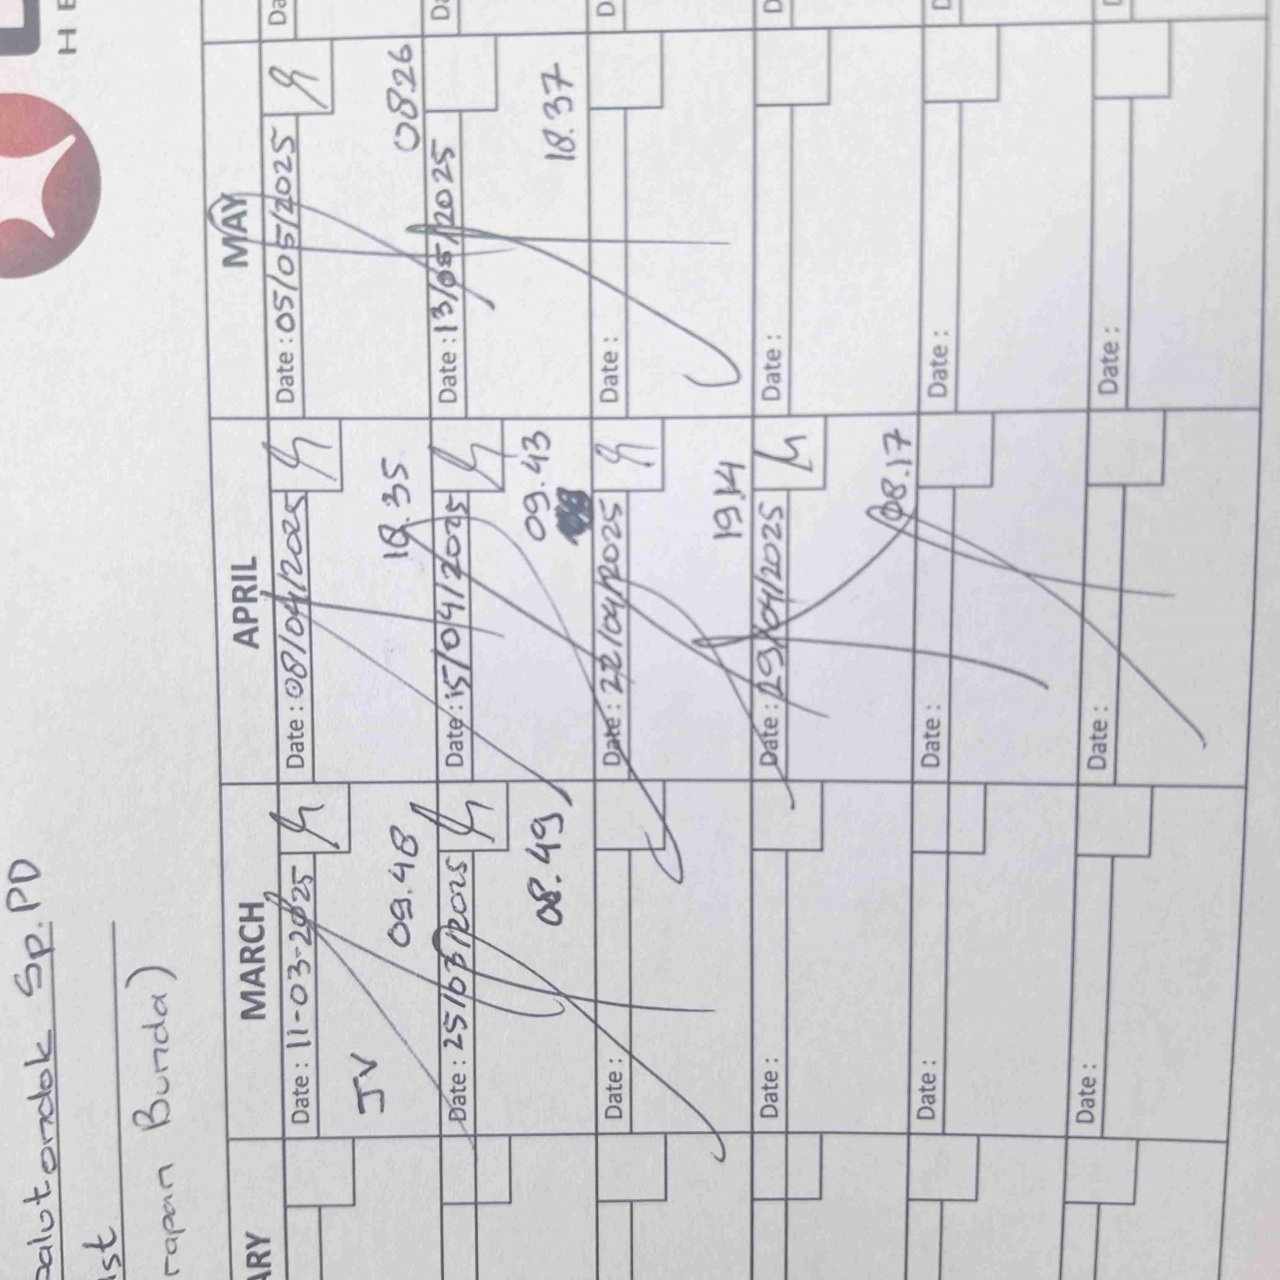 Sp. PD
Bunda)
MARCH
Date : 11-03-2025
JV
09.48
Date : 25/03/2025
08.49
Date :
Date :
Date :
Date :
APRIL
Date : 08/04/2025
18.35
Date : 15/04/2025
09.43
Date : 22/04/2025
19.14
Date : 29/04/2025
08.17
Date :
Date :
MAY
Date : 05/05/2025
0826
Date : 13/05/2025
18.37
Date :
Date :
Date :
Date :